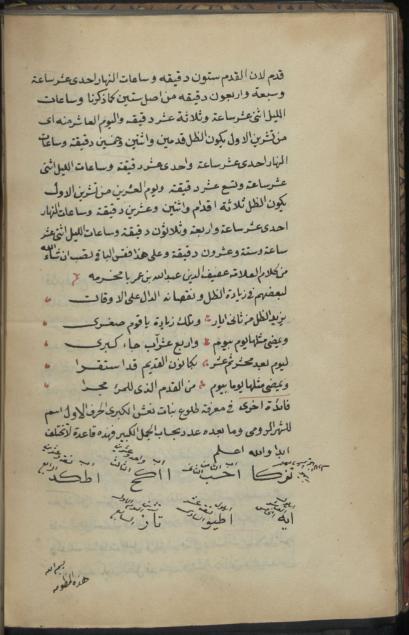 قدم لان القدم ستون دقيقه وساعات النهار احدى عشر ساعة
وسبعة واربعون دقيقه من اصل ستين كما ذكرنا وساعات
الليل اثنى عشر ساعة وثلاثة عشر دقيقه واليوم العاشر منه اى
من تشرين الاول يكون الظل قدمين واثنين وخمسين دقيقة وساعات
النهار احدى عشر ساعة واحدى عشر دقيقة وساعات الليل اثنى
عشر ساعة وتسع عشر دقيقة ويوم العشرين من تشرين الاول
يكون الظل ثلاثة اقدام واثنين وعشرين دقيقة وساعات النهار
احدى عشر ساعة واربعة وثلاثون دقيقة وساعات الليل اثنى عشر
ساعة وستة وعشرون دقيقة وعلى هذا فقس الباقى تصب ان شاء الله
من كلام العلامة عفيف الدين عبد الله بن عمر بامخرمه
لبعضهم فى زيادة الظل ونقصانه الدال على الاوقات
يزيد الظل من ثانى ايار وتلك زيادة ياقوم صغرى
ويمضى مثلها يوم بيوم واربع عشر آب جاء كبرى
ليوم بعد مخر ثم عشر بكانون القديم قد استقرا
ويمضى مثلها يوما بيوم من القدم الذى للمرء مجرا
فائدة اخرى فى معرفة طلوع بنات نعش الكبرى الحرف الاول اسم
للشهر الرومى وما بعده عدد بحساب الجمل الكبير فهذه قاعدة لا تختلف
ابدا والله اعلم
احب ااكح اطكد
ايه اطيو تاز
بسم الله
هذه المنظومه